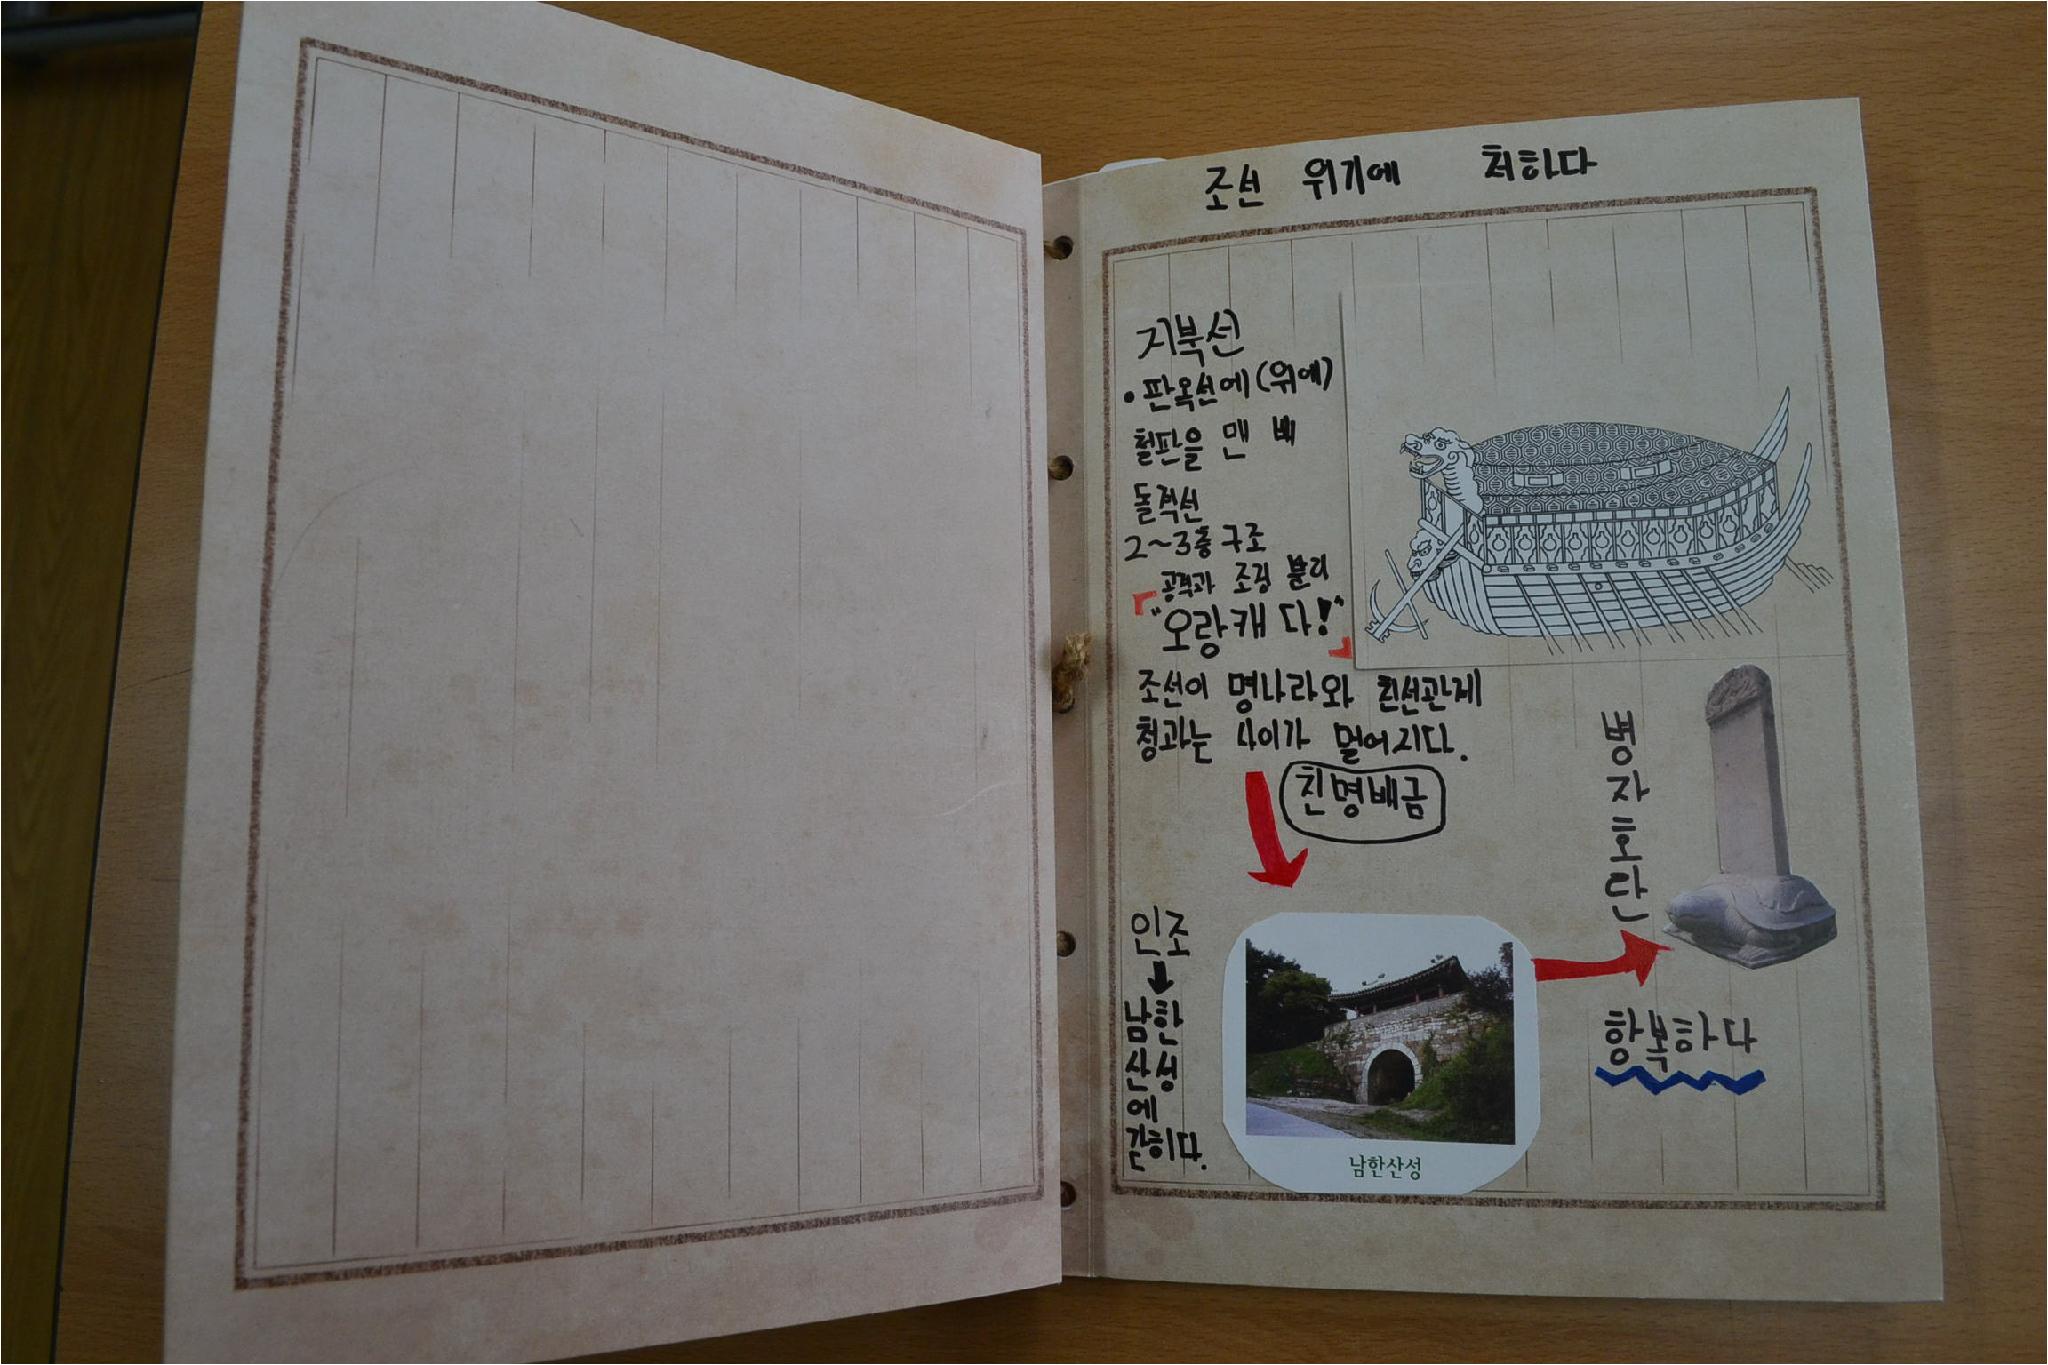 조선 위기에 처하다
거북선
• 판옥선에(위에)
철판을 맨 배
돌격선
2~3층 구조
공격과 조정 분리
「"오랑캐 다!"」
조선이 명나라와 친선관계
청과는 사이가 멀어지다.
친명배금
병자호란
인조
↓
남한
산성
에
갇히다.
남한산성
항복하다